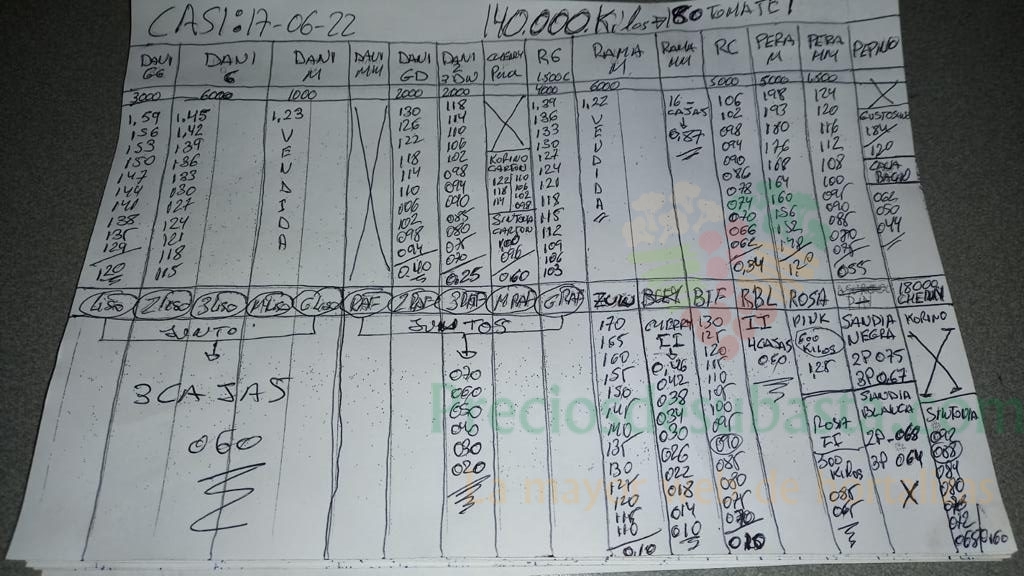 CASI: 17-06-22 140.000 Kilos 80 TOMATE!
DANI GG DANI G DANI M DANI MM DANI GD DANI 2DN CHERRY Pera RG 1500C RAMA M RAMA MM RC PERA M PERA MM PEPINO
3000 6000 1000 2000 2000 4000 6000 5000 5000 1500
1,59 1,45 1,23 130 118 1,39 1,22 16 CAJAS 106 198 124
156 1,42 V 126 114 136 V 0,87 102 193 120 GUSTOSINO
153 139 E 122 110 133 E 098 180 116 184
150 136 N 118 106 130 N 094 176 112 120
147 133 D 114 102 KORINO CARTON 127 D 090 168 108
144 130 I 110 098 124 I 086 164 100
141 127 D 106 094 121 D 078 160
138 124 A 102 090 SINTONIA CARTON 118 A 074 156 090 062
135 121 098 085 115 070 152 085 050
129 118 094 080 112 066 148 044
120 115 0,40 075 109 062 120 055
070 106 0,54
0,25 0,60 103
1 Liso 2 Liso 3 Liso M Liso G Liso 2 RAF 3 RAF M RAF G RAF BIF RBL ROSA 18000 CHERRY
JUNTO JUNTOS
3 CAJAS
060
070
060
050
040
030
020
170
165
160
155
150
145
140
135
130
125
120
115
110
0,10
CHERRY
II
042
038
034
030
026
022
018
014
010
130
125
120
115
110
105
100
090
085
080
075
070
010
II
4 CAJAS
060
PINK
600 KILOS
125
ROSA
II
300 KILOS
085
065
SANDIA
NEGRA
2P 075
3P 067
SANDIA
BLANCA
2P-068
3P 064
X
KORINO
SINTONIA
092
088
084
080
072
068 060
Preciosdesubasta.com
La mayor web de hortalizas